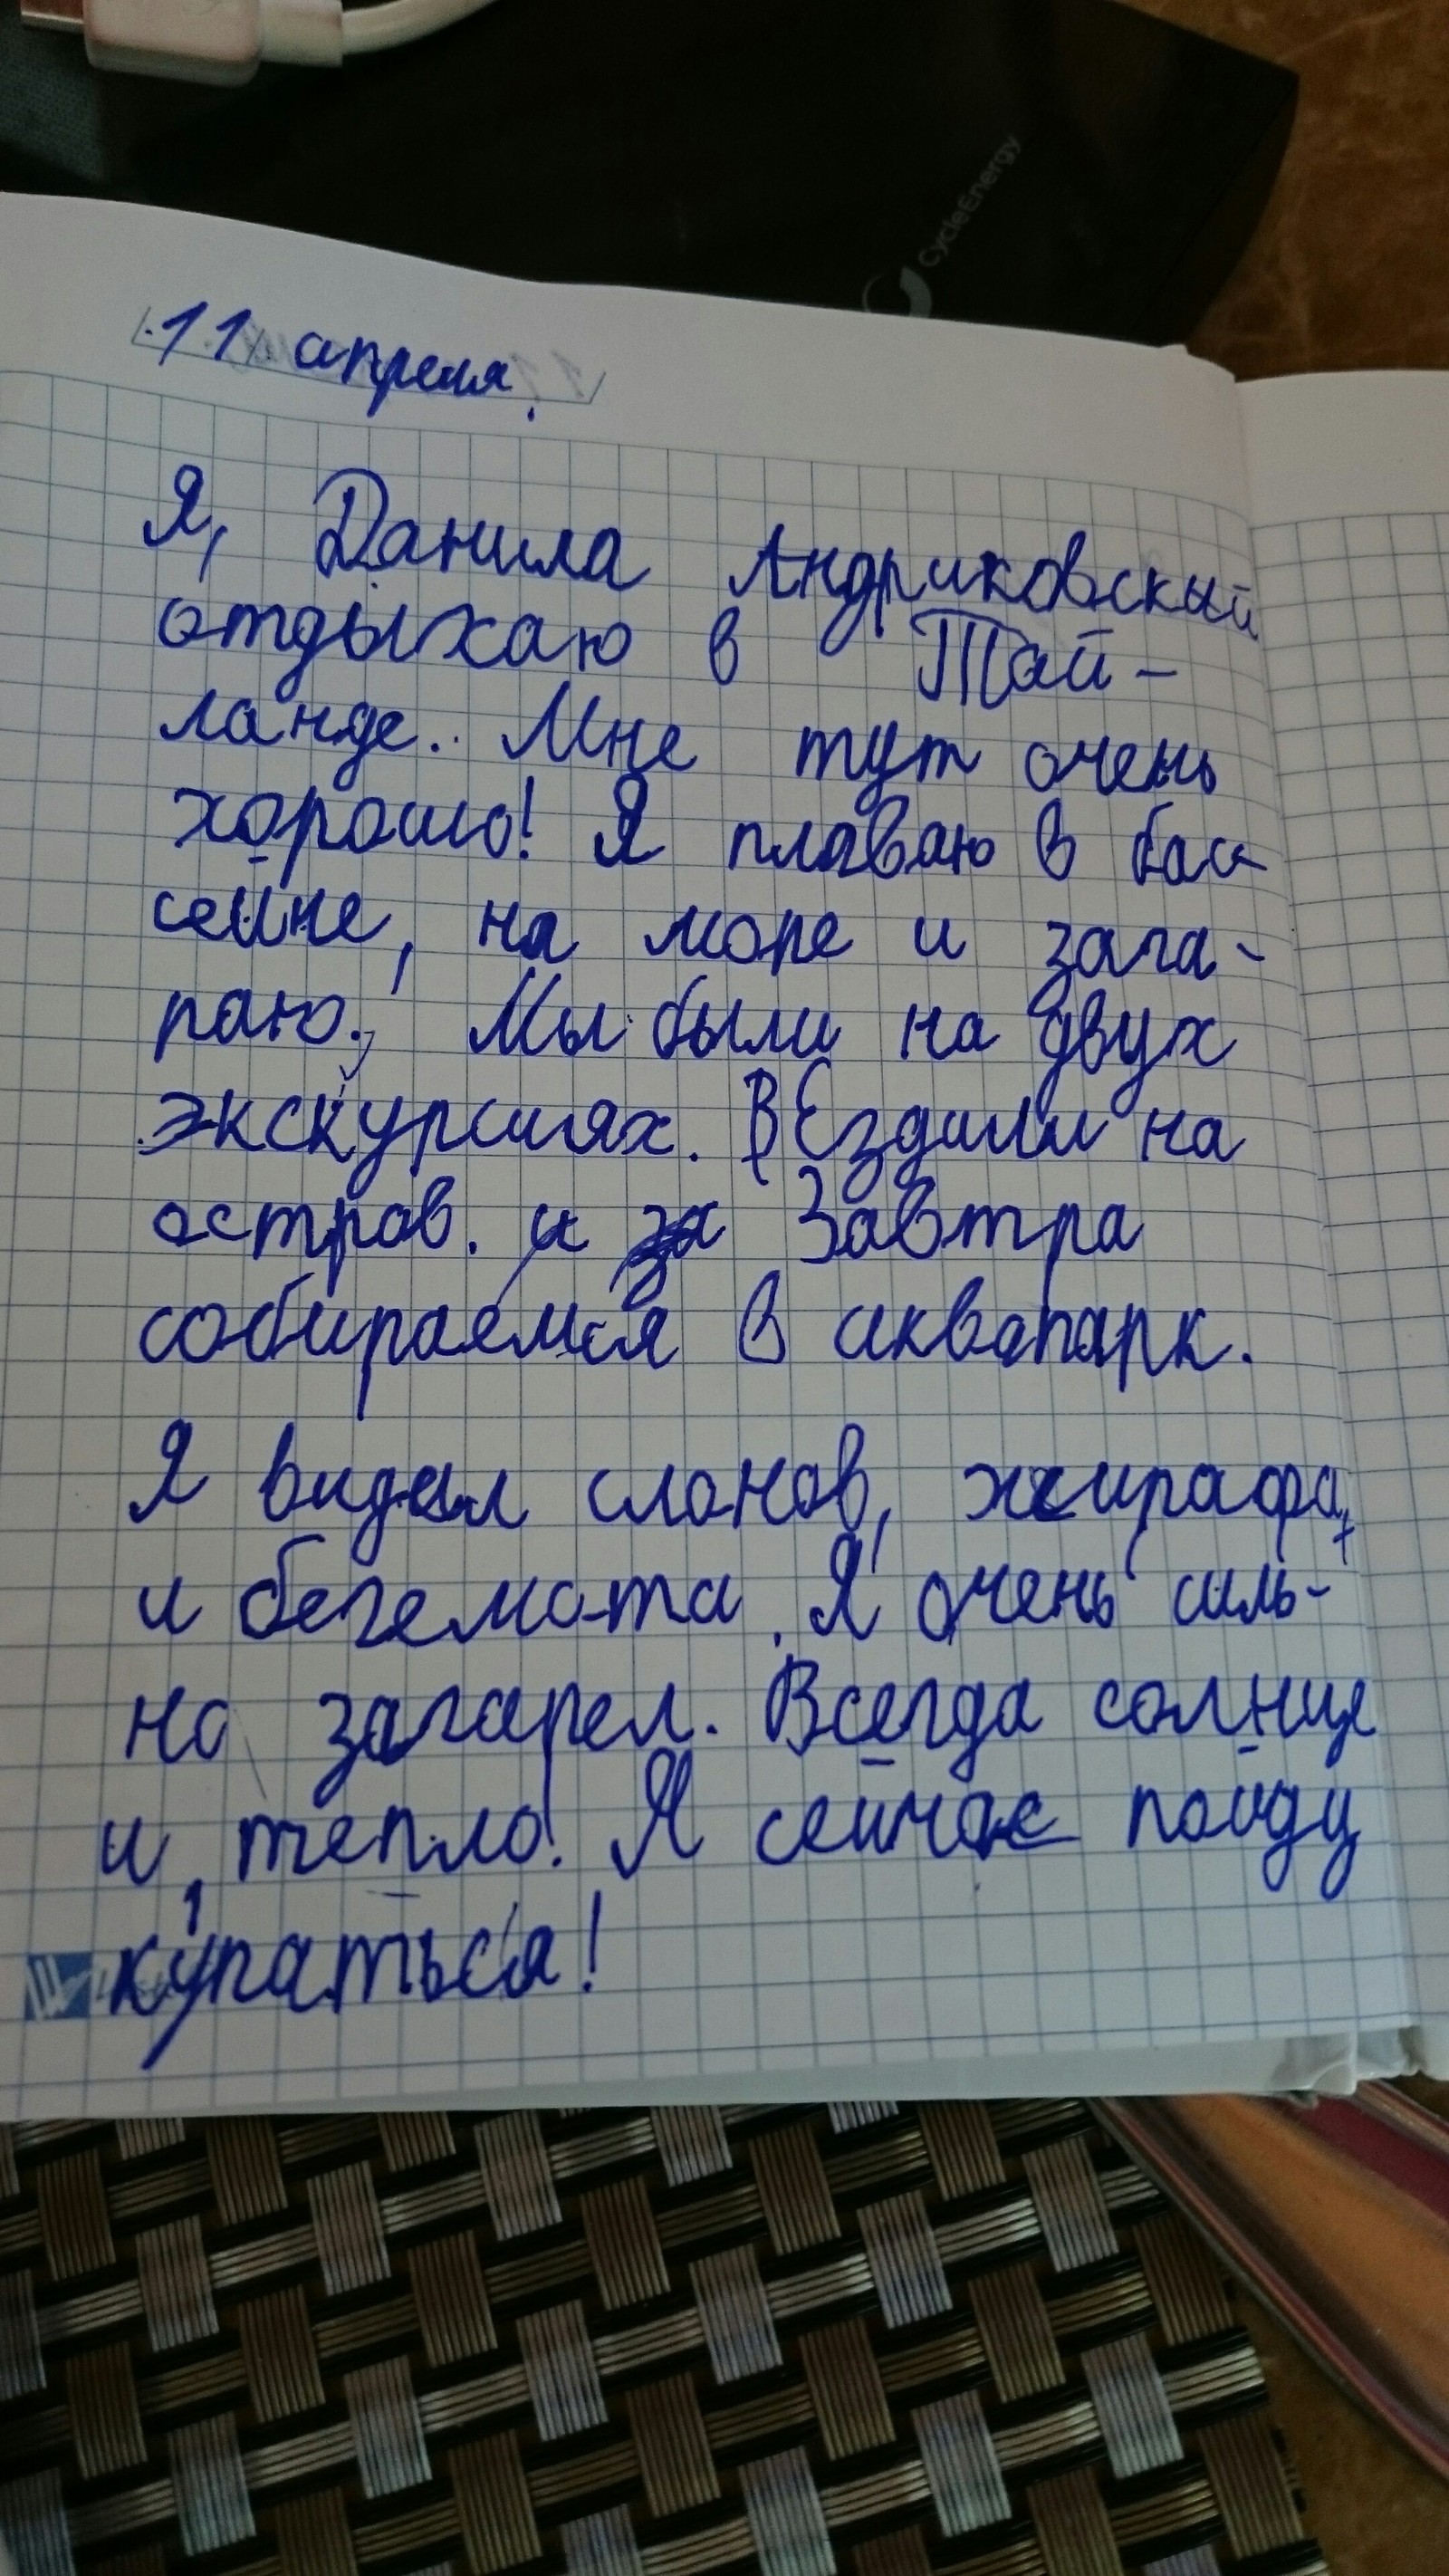 CycleEnergy
11 апреля.
Я, Данила Андриковский
отдыхаю в Тай-
ланде. Мне тут очень
хорошо! Я плаваю в бас-
сейне, на море и зага-
раю. Мы были на двух
экскурсиях. Ездили на
остров. и за Завтра
собираемся в аквапарк.
Я видел слонов, жирафа,
и бегемота. Я очень силь-
но загарел. Всегда солнце
и тепло! Я сейчас пойду
купаться!